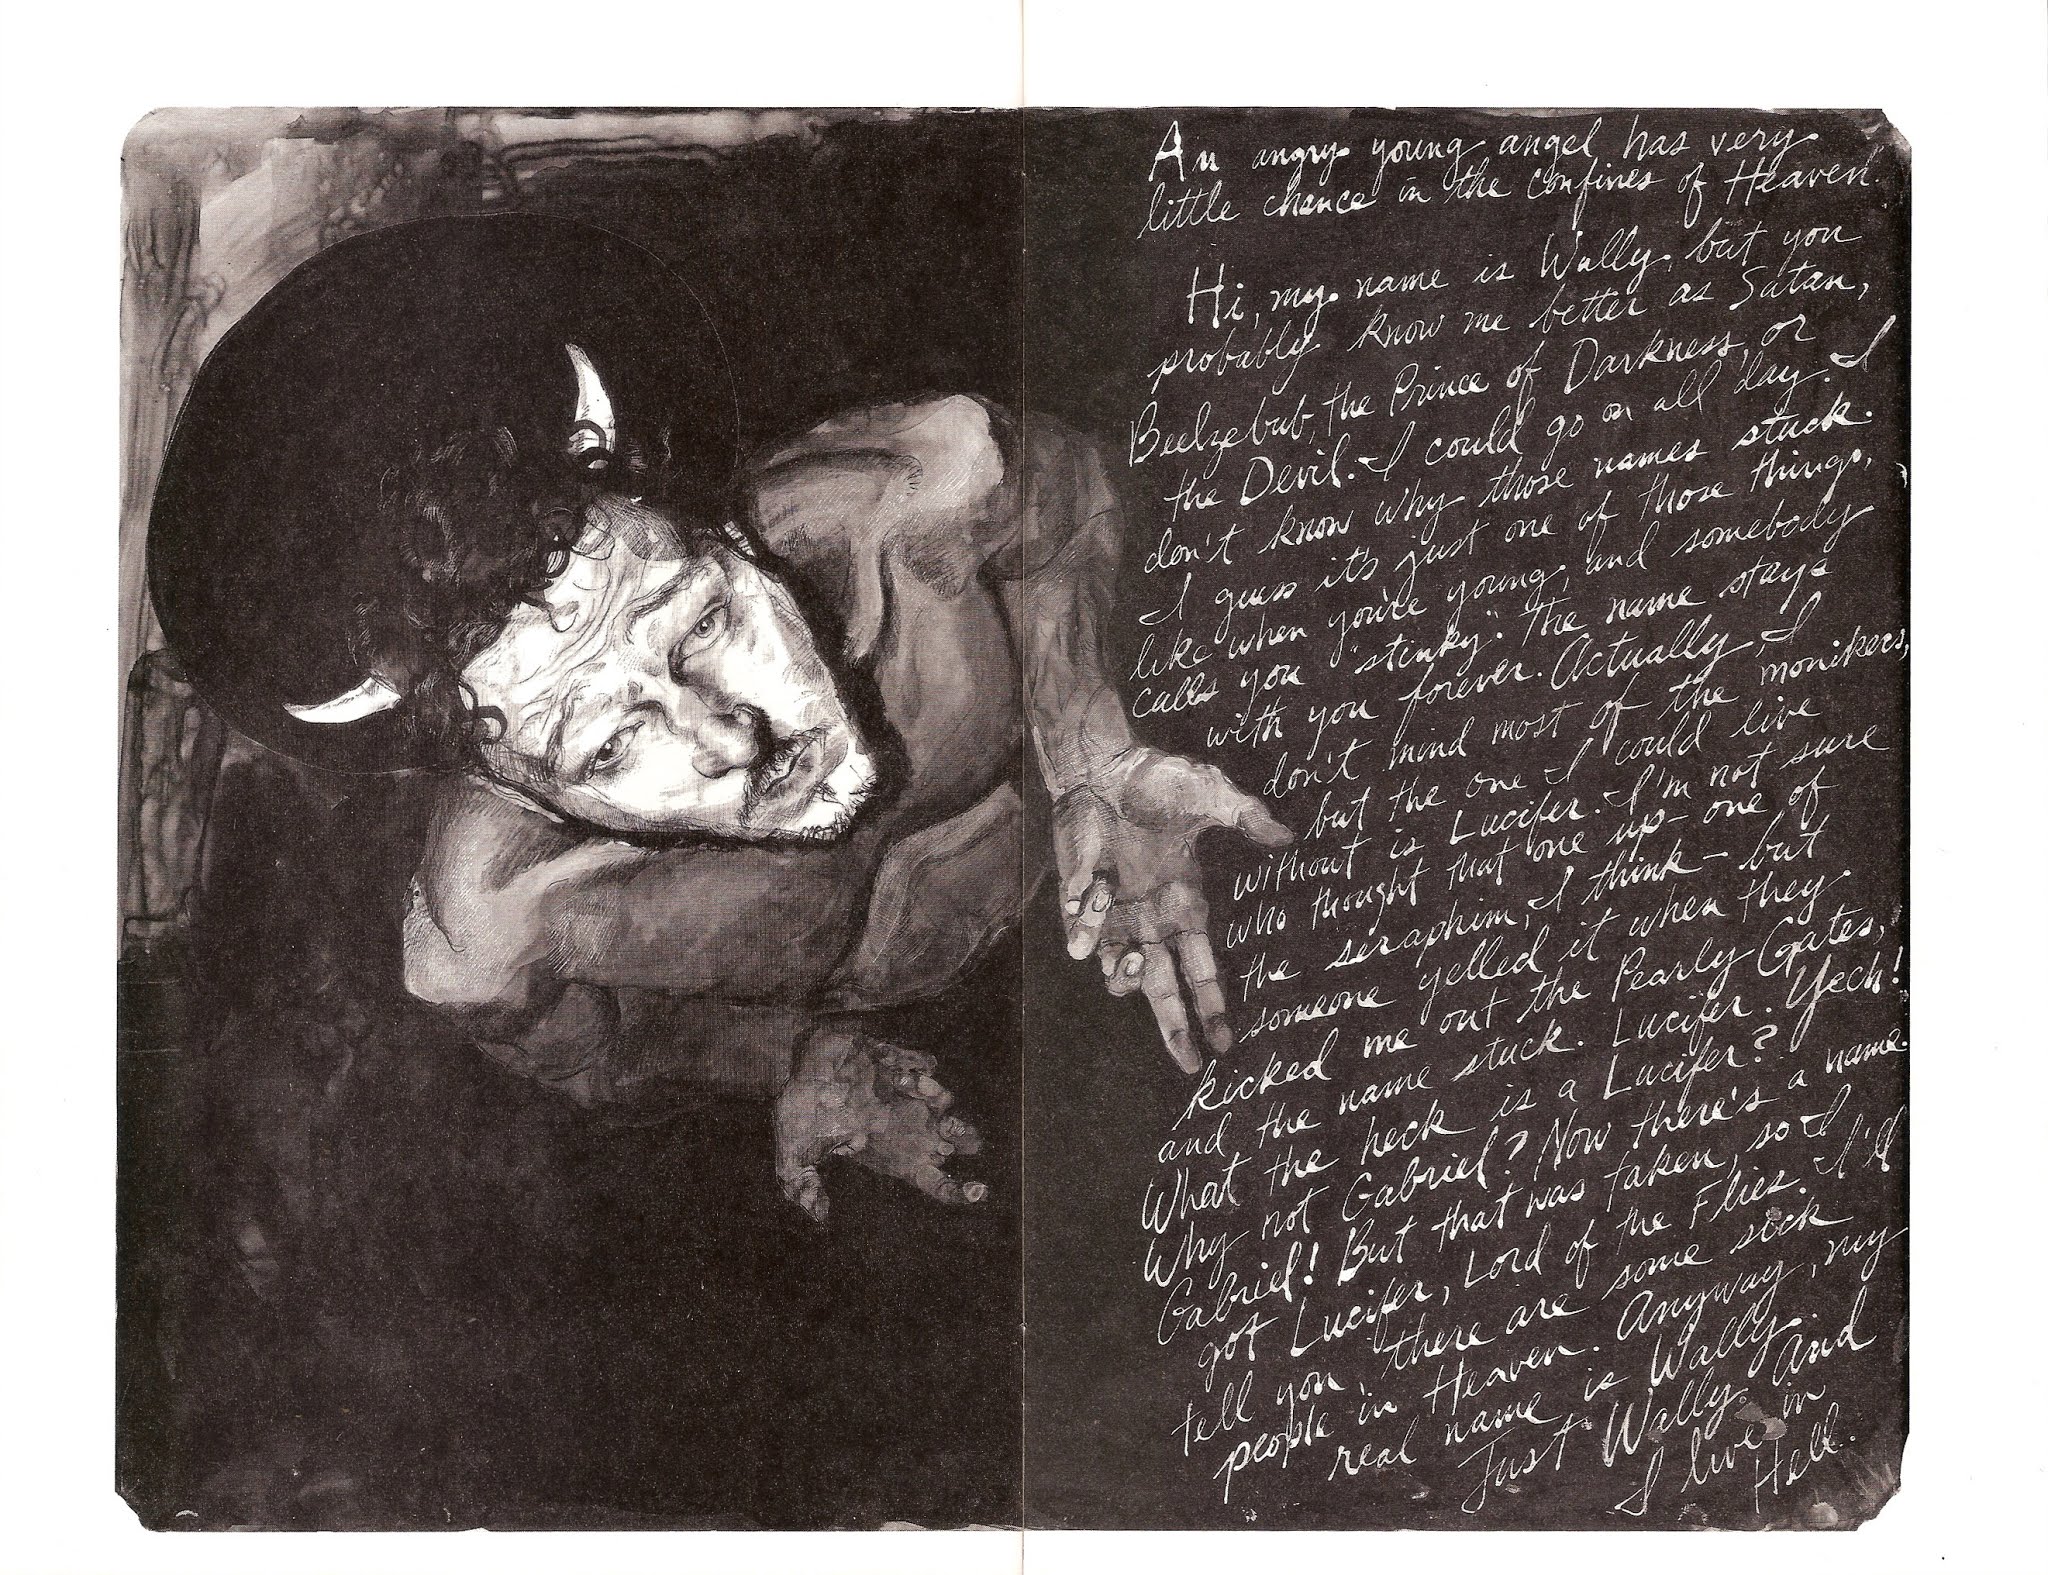 An angry young angel has very
little chance in the confines of Heaven.
Hi, my name is Wally, but you
probably know me better as Satan,
Beelzebub, the Prince of Darkness, or
the Devil. I could go on all day. I
don't know why those names stuck.
I guess it's just one of those things,
like when you're young, and somebody
calls you "stinky". The name stays
with you forever. Actually, I
don't mind most of the monikers,
but the one I could live
without is Lucifer. I'm not sure
who thought that one up - one of
the seraphim, I think - but
someone yelled it when they
kicked me out the Pearly Gates,
and the name stuck. Lucifer. Yech!
What the heck is a Lucifer?
Why not Gabriel? Now there's a name.
Gabriel! But that was taken, so I
got Lucifer, Lord of the Flies. I'll
tell you, there are some sick
people in Heaven. Anyway, my
real name is Wally.
Just Wally. And
I live in
Hell.